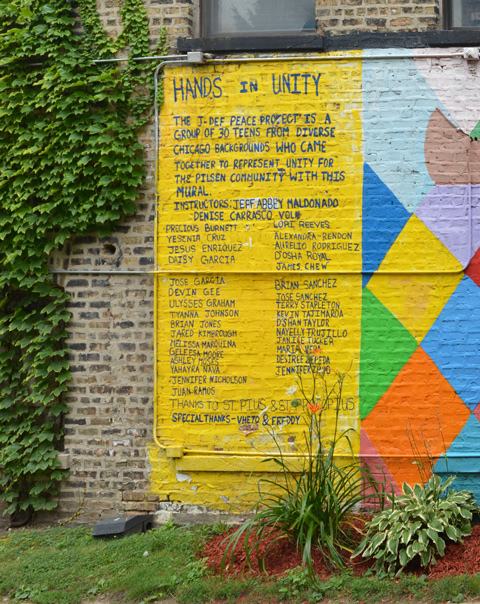 HANDS IN UNITY
THE J-DEF PEACE PROJECT IS A
GROUP OF 30 TEENS FROM DIVERSE
CHICAGO BACKGROUNDS WHO CAME
TOGETHER TO REPRESENT UNITY FOR
THE PILSEN COMMUNITY WITH THIS
MURAL.
INSTRUCTORS: JEFF ABBEY MALDONADO
DENISE CARRASCO VOL#
PRECIOUS BURNETT
YESENIA CRUZ
JESUS ENRIQUEZ
DAISY GARCIA
JOSE GARCIA
DEVIN GEE
ULYSSES GRAHAM
TYANNA JOHNSON
BRIAN JONES
JARED KIMBROUGH
MELISSA MARQUINA
GELEESA MOORE
ASHLEY MOORE
YAHAYRA NAVA
JENNIFER NICHOLSON
JUAN RAMOS
LORI REEVES
ALEXANDRA RENDON
AURELIO RODRIGUEZ
D'OSHA ROYAL
JAMES CHEW
BRIAN SANCHEZ
JOSE SANCHEZ
TERRY STAPLETON
KEVIN TAJIMAROA
D'SHAN TAYLOR
NAYELLY TRUJILLO
JANICE TUCKER
MARIA VERA
DESIREE ZEPEDA
JENNIFER
THANKS TO ST. PIUS & ST. PIUS
SPECIAL THANKS - VHETO & FREDDY